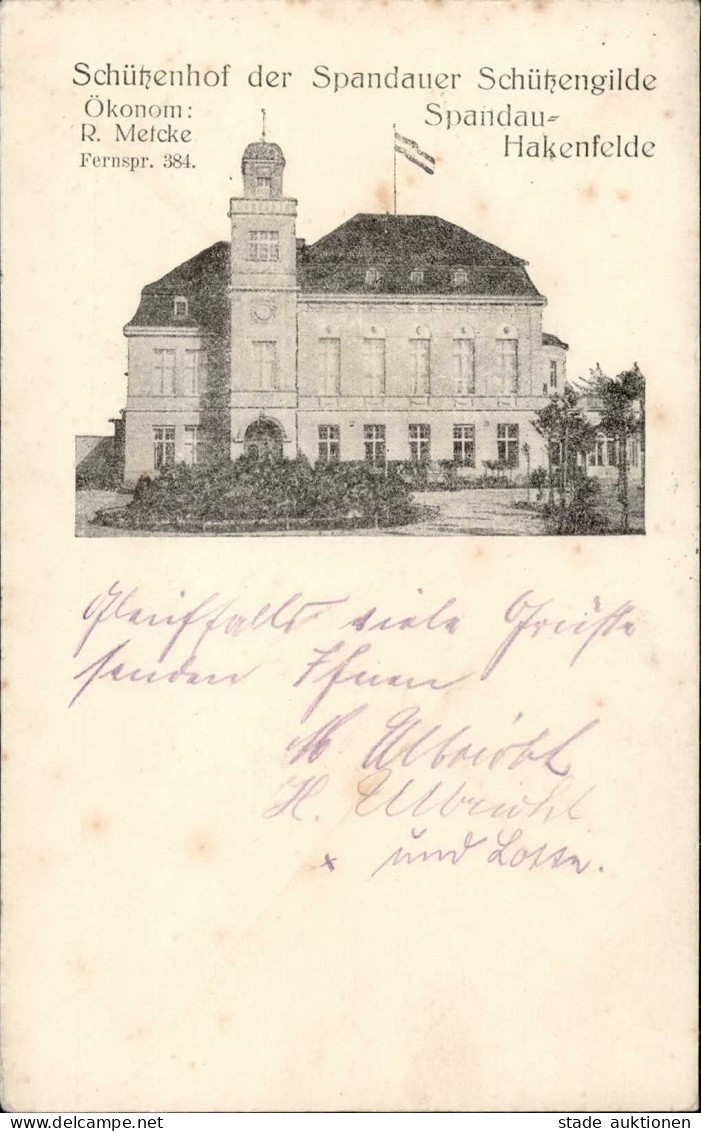 Schützenhof der Spandauer Schützengilde
Ökonom:
R. Metcke
Fernspr. 384.
Spandau-
Hakenfelde
Gleichfalls viele Grüsse
senden Ihnen
M Ulbricht
H. Ulbricht
x und Lotte.
delcampe.net
stade auktionen